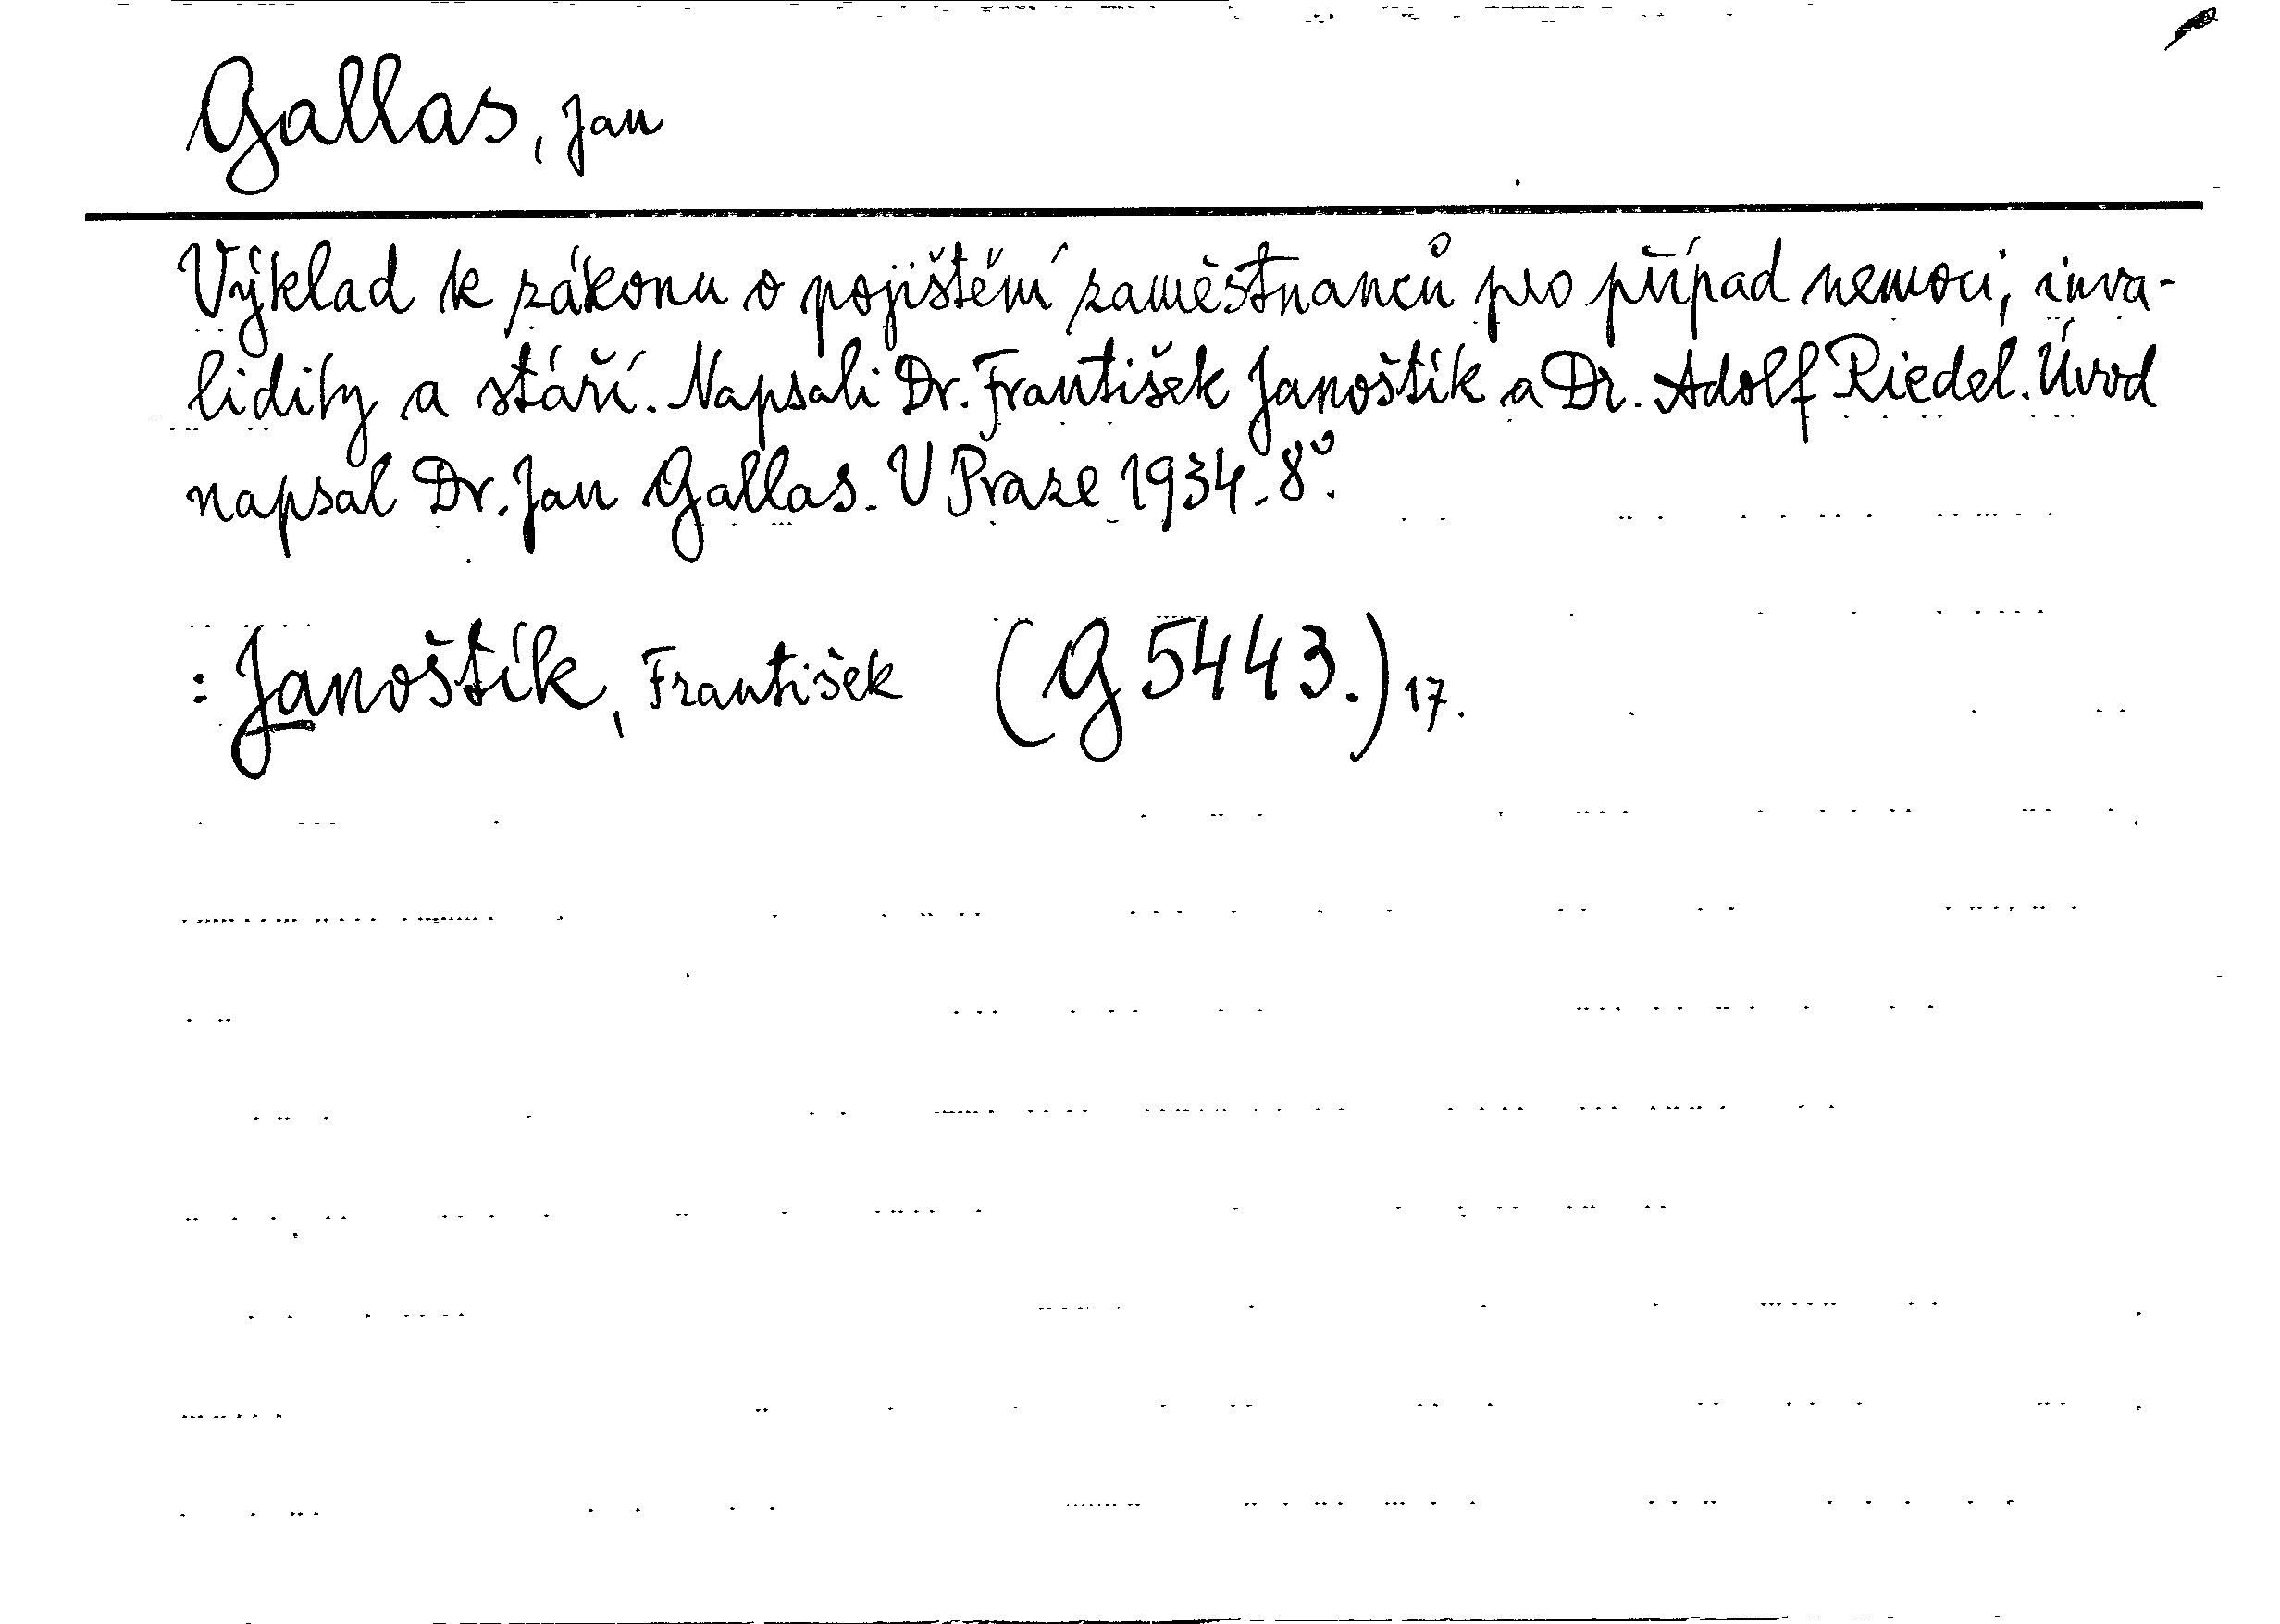 Gallas, Jan
Výklad k zákonu o pojištění zaměstnanců pro případ nemoci, inva-
lidity a stáří. Napsali Dr. František Janoštík a Dr. Adolf Riedel. Úvod
napsal Dr. Jan Gallas. V Praze 1934. 8°.
: Janoštík, František (G 5443.) 17.